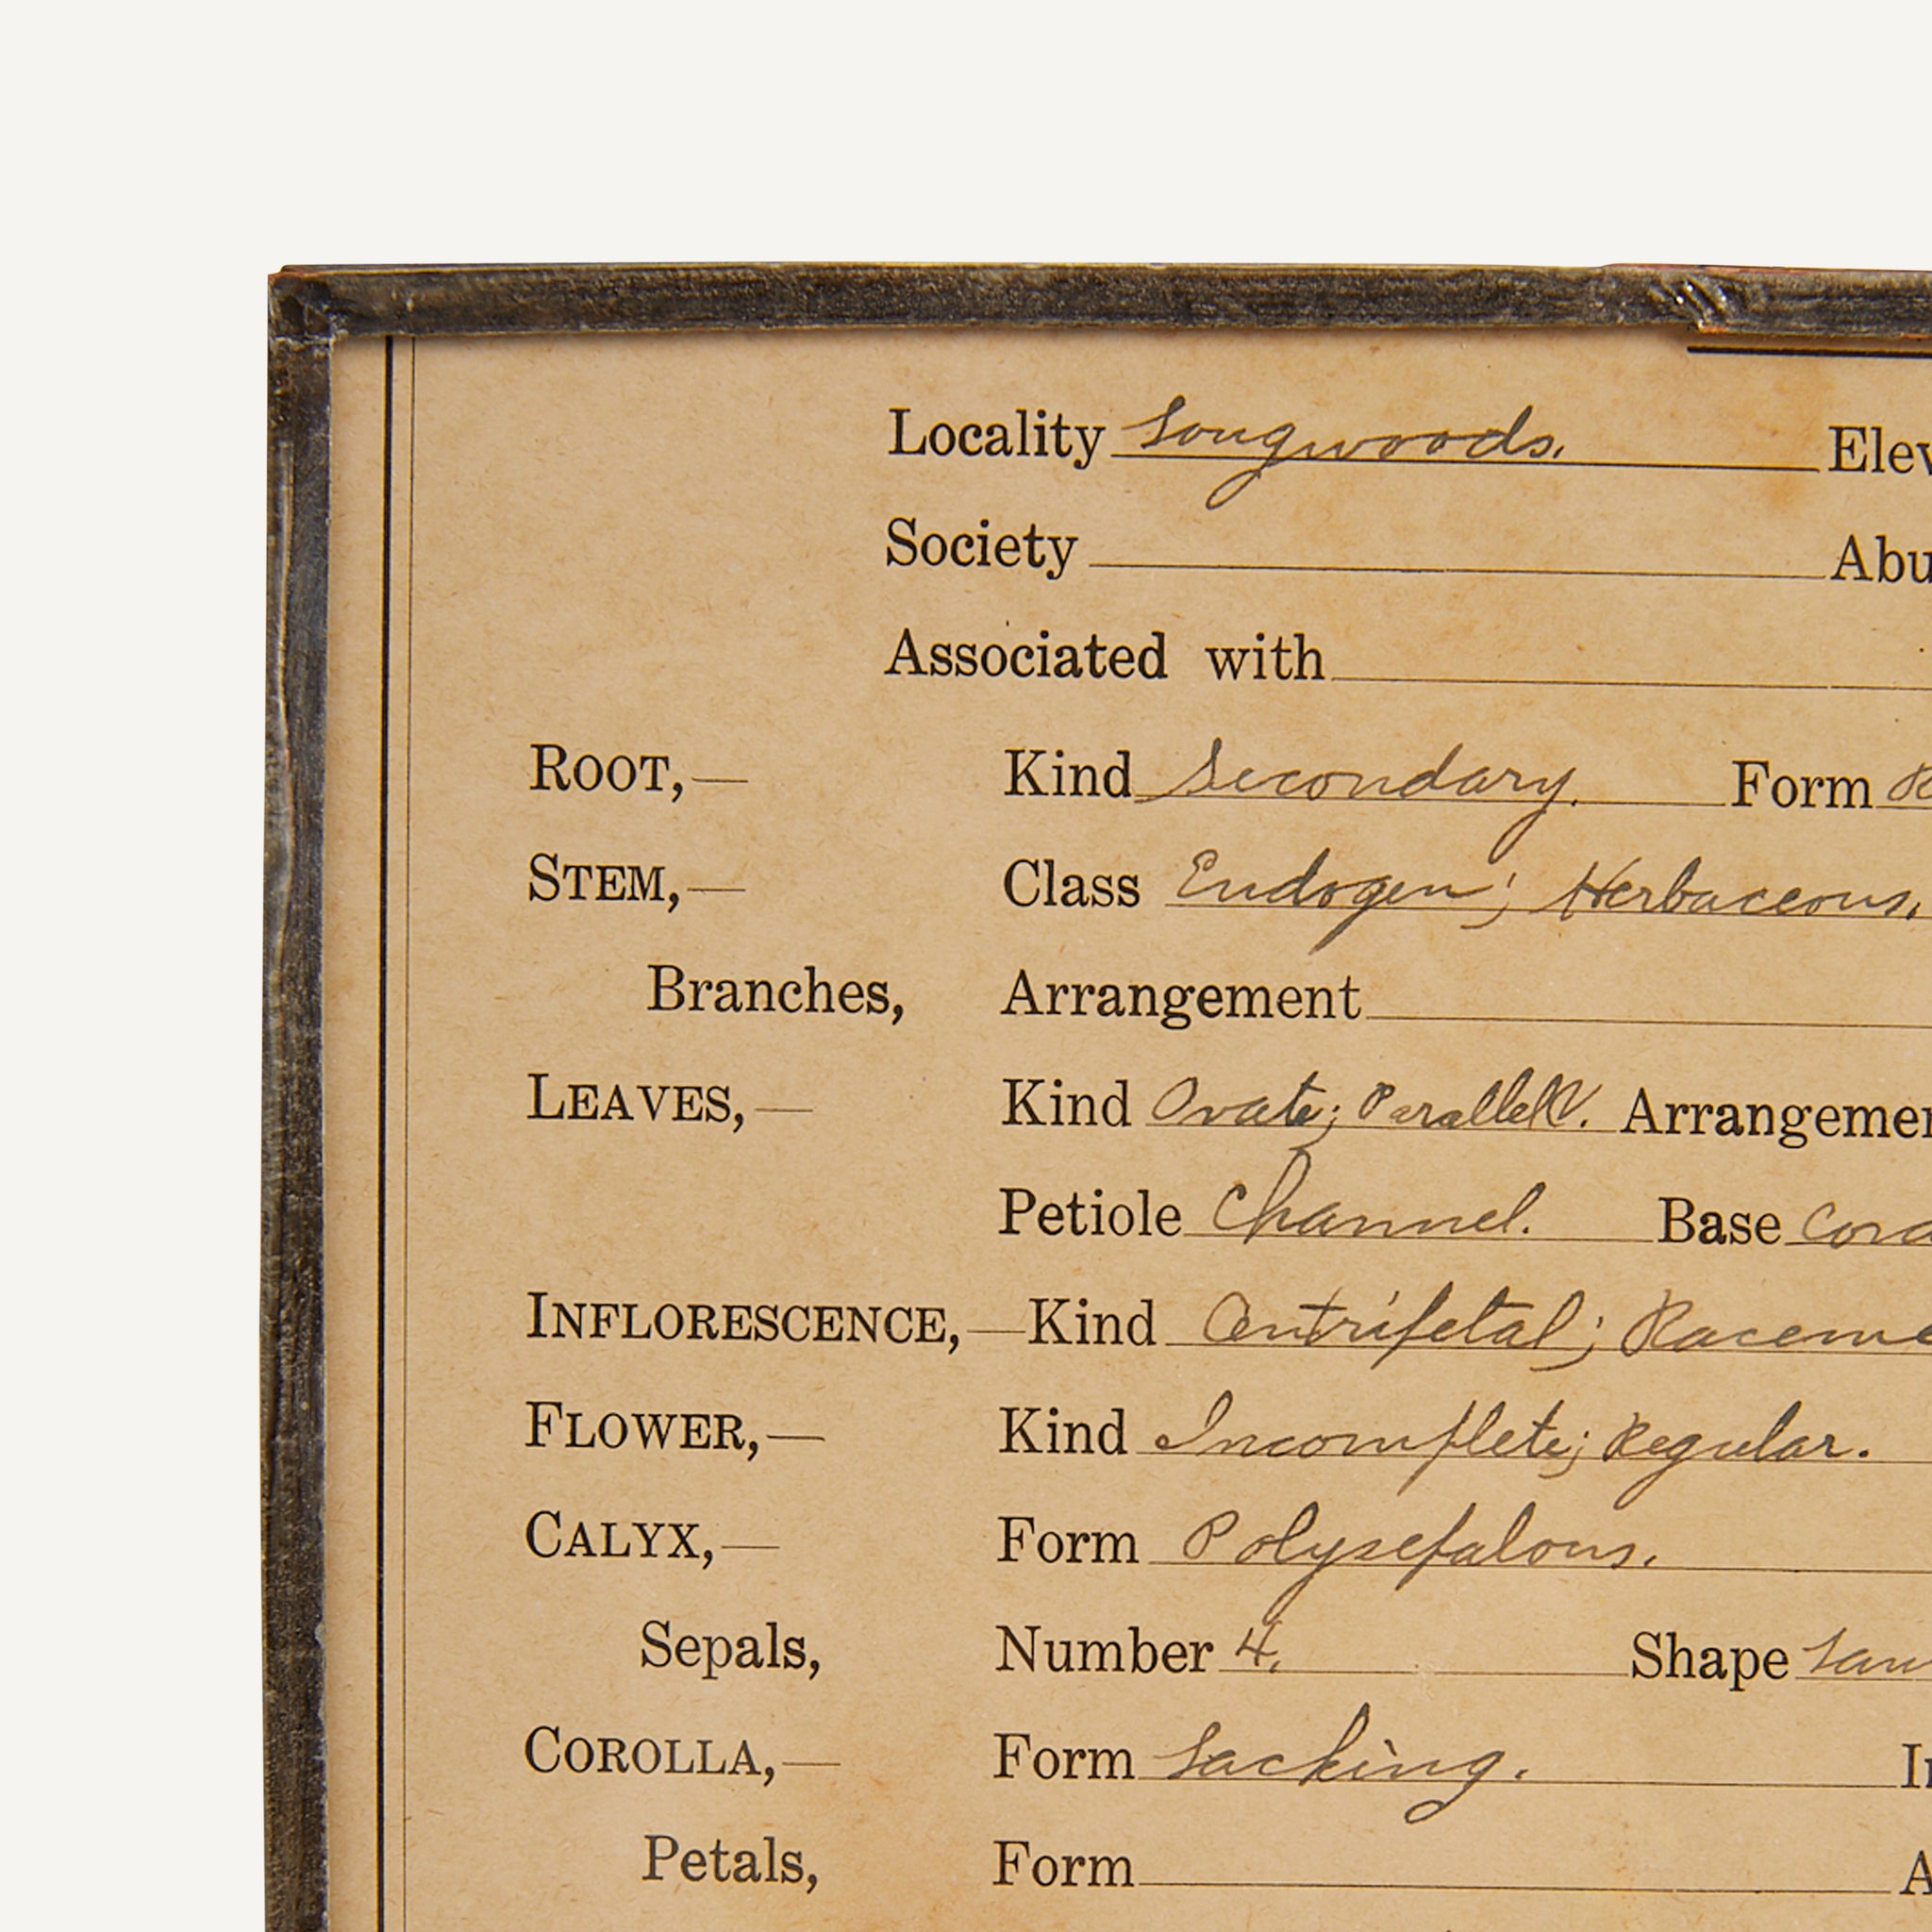 Locality Longwoods. Elev
Society Abu
Associated with
ROOT,— Kind Secondary. Form
STEM,— Class Endogen; Herbaceous.
Branches, Arrangement
LEAVES,— Kind Ovate; Parallel V. Arrangemen
Petiole Channel. Base Cord
INFLORESCENCE,— Kind Centripetal; Raceme
FLOWER,— Kind Incomplete; Regular.
CALYX,— Form Polysepalous.
Sepals, Number 4. Shape Lan
COROLLA,— Form Lacking. In
Petals, Form A